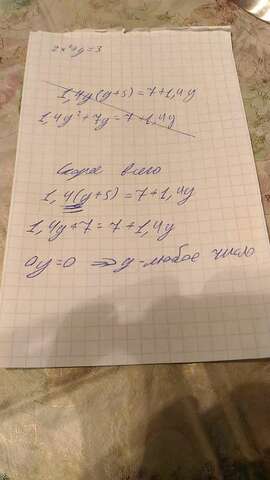 2x²y=3
1,4y(y+5)=7+1,4y
1,4y²+7y=7+1,4y
Скорее всего
1,4(y+5)=7+1,4y
1,4y+7=7+1,4y
0y=0 => y-любое число